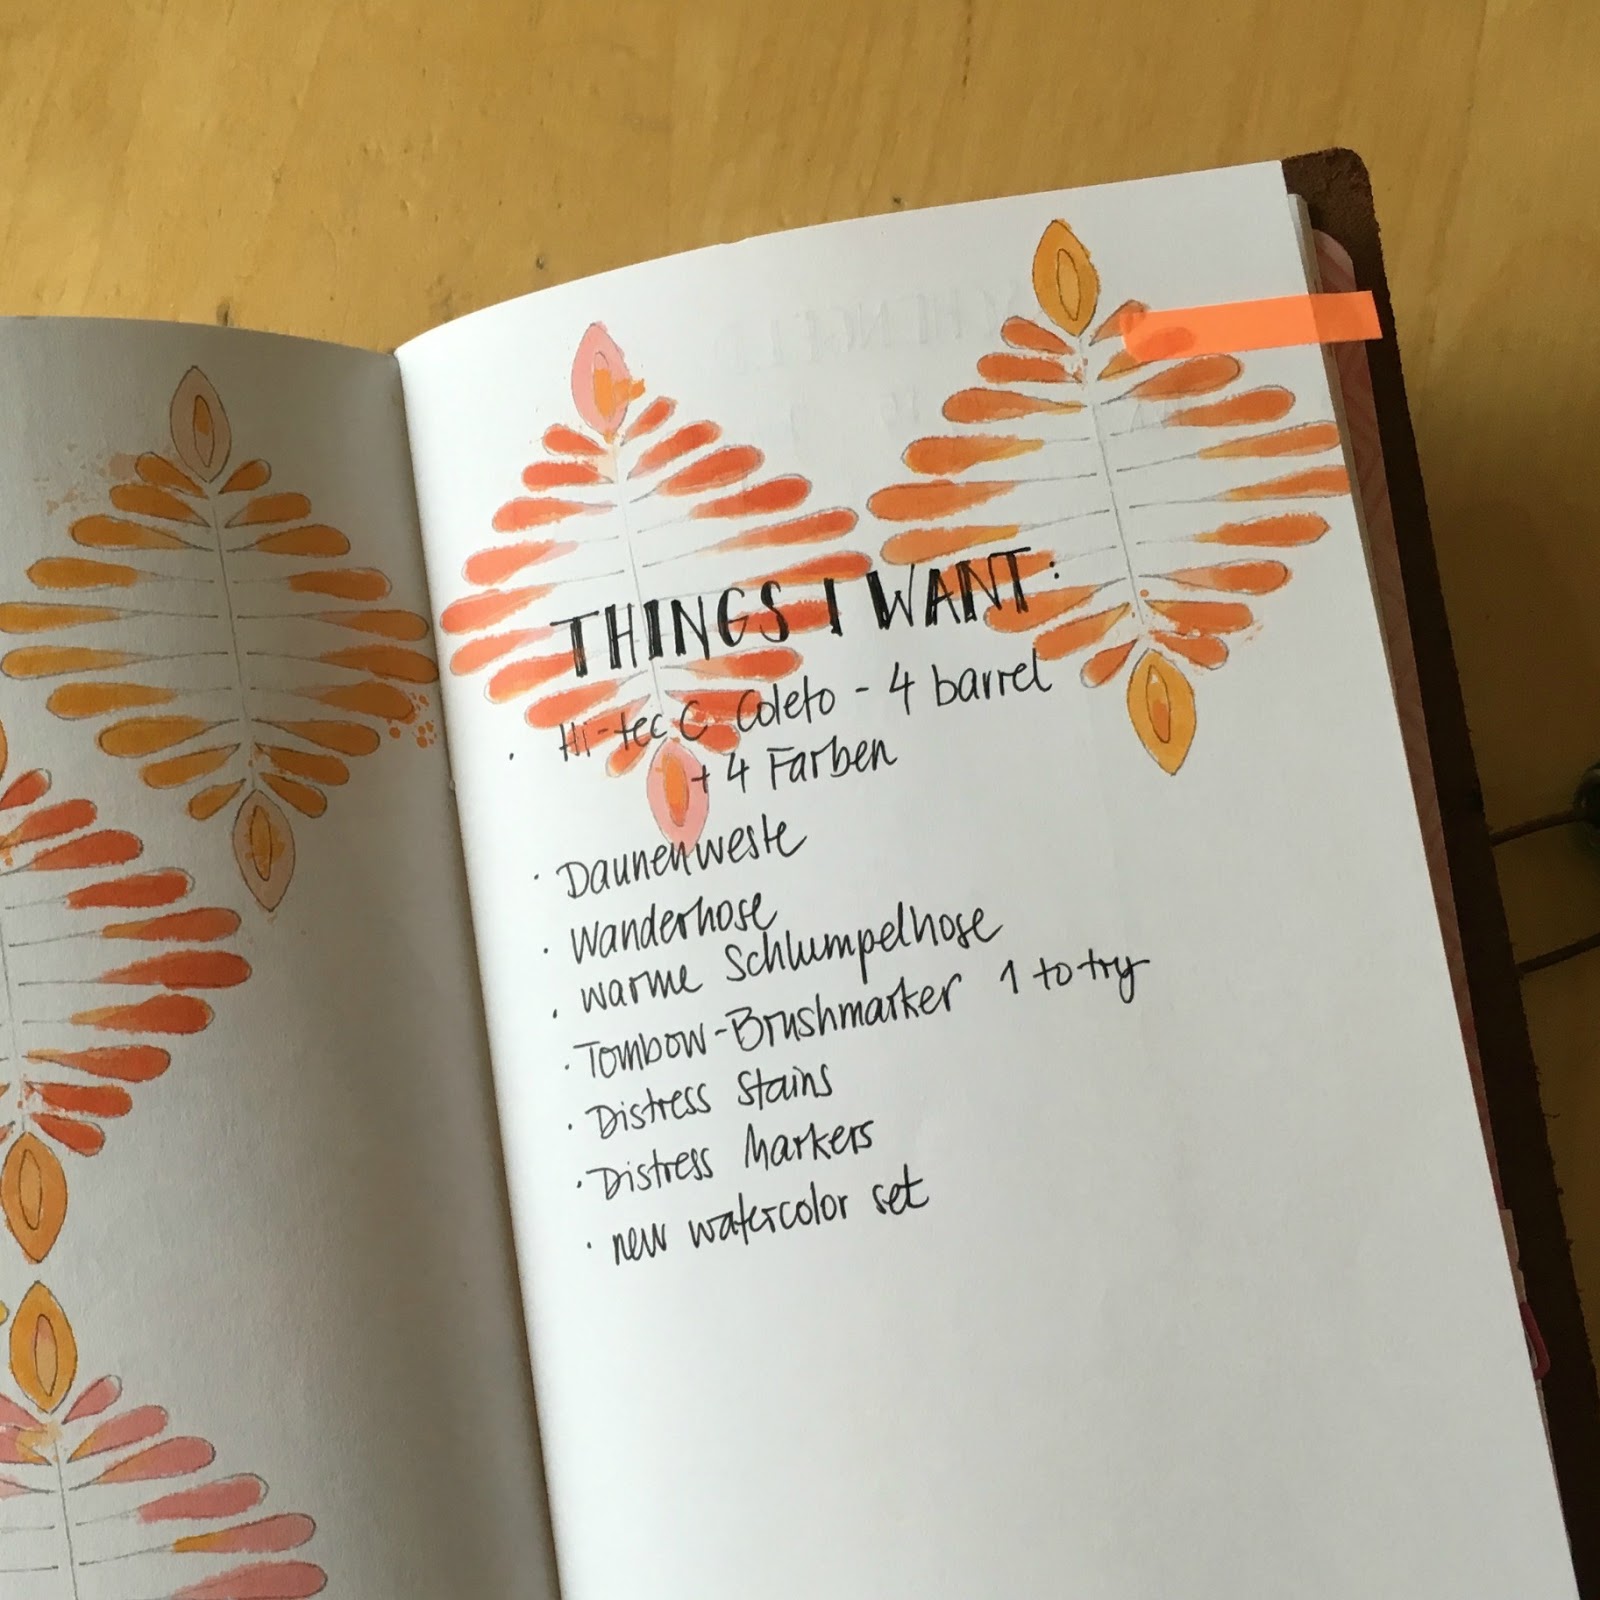 THINGS I WANT:
· Hi-tec C Coleto - 4 barrel
+ 4 Farben
· Daunenweste
· Wanderhose
· warme Schlumpelhose
· Tombow-Brushmarker 1 to try
· Distress Stains
· Distress Markers
· new watercolor set